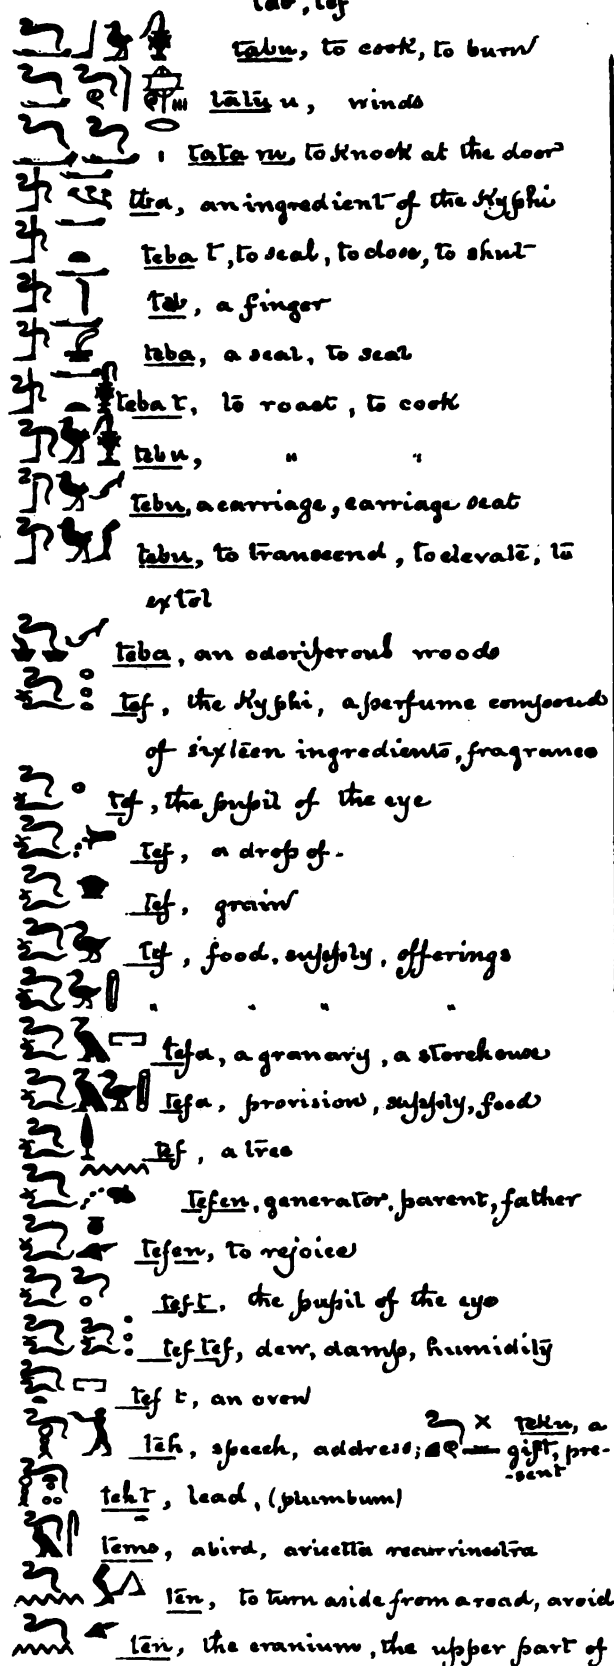 tabu, to cook, to burn
tātiu u, winds
tata ru, to Knock at the door
tba, an ingredient of the Kyphi
teba t, to seal, to close, to shut
teb, a finger
teba, a seal, to seal
teba t, to roast, to cook
tebu, " "
Tebu, a carriage, carriage seat
tebu, to transcend, to elevate, to
extol
teba, an odoriferous wood
tef, the Kyphi, a perfume composed
of sixteen ingredients, fragrance
tef, the pupil of the eye
tef, a drop of -
tef, grain
tef, food, supply, offerings
" " " "
tefa, a granary, a storehouse
tefa, provision, supply, food
tef, a tree
tefen, generator, parent, father
tefen, to rejoice
tef t, the pupil of the eye
tef tef, dew, damp, humidity
tef t, an oven
teh, speech, address; teku, a
gift, pre-
-sent
teht, lead, (plumbum)
tems, a bird, avicetta recurrinostra
ten, to turn aside from a road, avoid
ten, the cranium, the upper part of